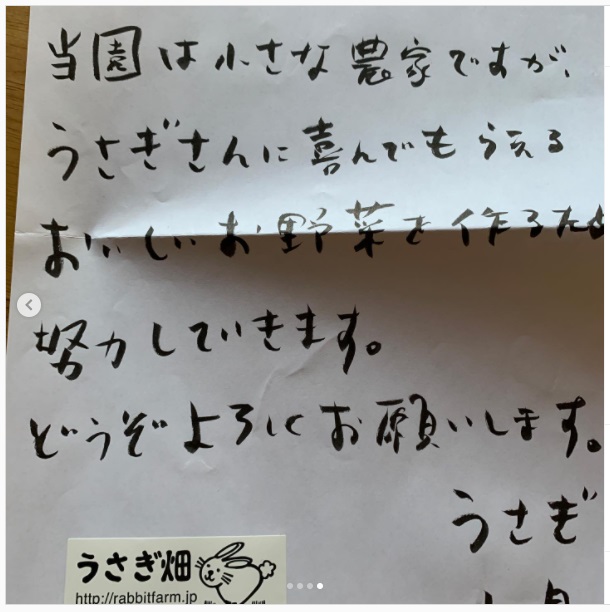 当園は小さな農家ですが、
うさぎさんに喜んでもらえる
おいしいお野菜を作るため
努力していきます。
どうぞよろしくお願いします。
うさぎ
うさぎ畑
http://rabbitfarm.jp